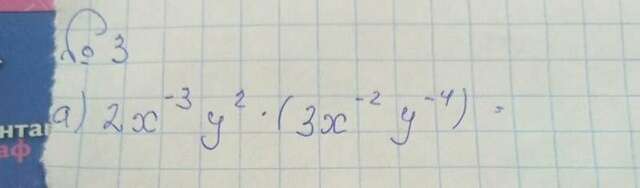 № 3
а) 2x⁻³y² · (3x⁻²y⁻⁴) =
нта
аф